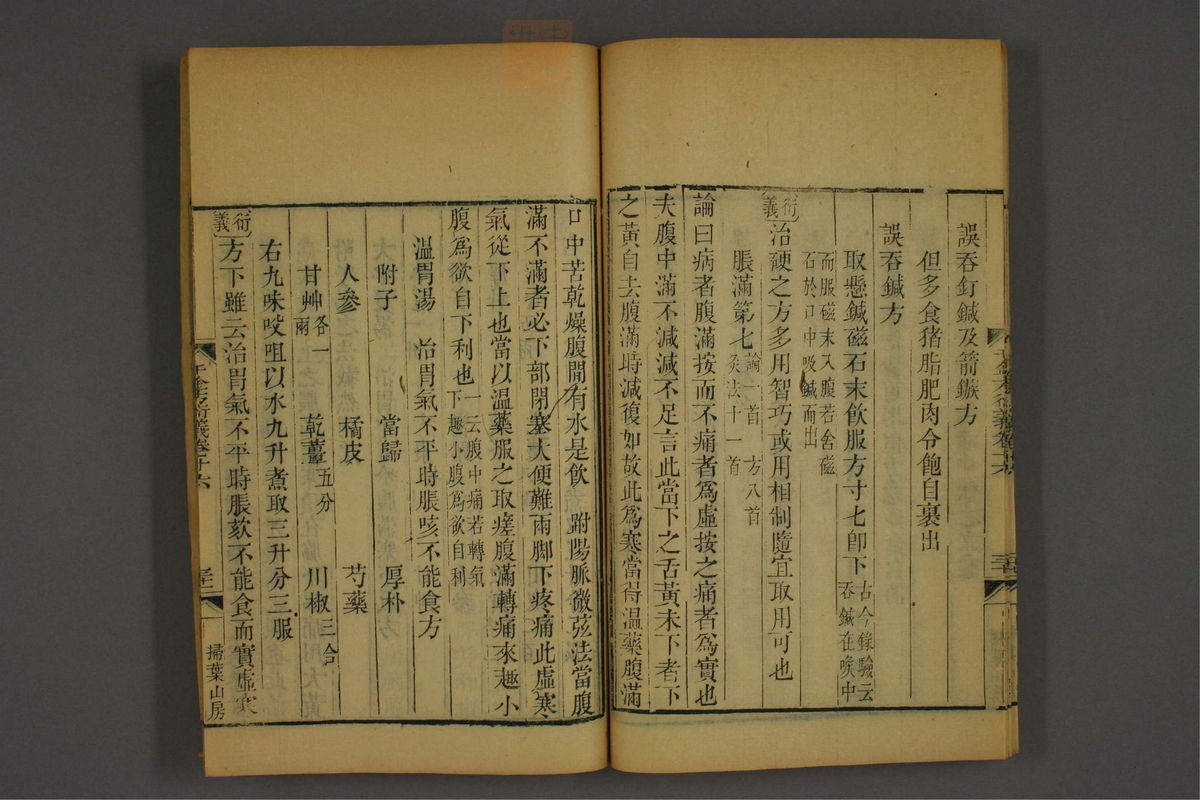 誤吞釘鍼及箭鏃方
但多食猪脂肥肉令飽自裹出
誤吞鍼方
取懸鍼磁石末飲服方寸七卽下
古今錄驗云
吞鍼在喉中
而服磁末入腹若含磁
石於口中吸鍼而出
衍義
治鯁之方多用智巧或用相制隨宜取用可也
脹滿第七
論一首 方八首
灸法十一首
論曰病者腹滿按而不痛者爲虛按之痛者爲實也
夫腹中滿不減減不足言此當下之舌黃未下者下
之黃自去腹滿時減復如故此爲寒當得温藥腹滿
口中苦乾燥腹閒有水是飲 趺陽脈微弦法當腹
滿不滿者必下部閉塞大便難兩脚下疼痛此虛寒
氣從下上也當以温藥服之取瘥腹滿轉痛來趣小
腹爲欲自下利也
一云腹中痛若轉氣
下趣小腹爲欲自利
温胃湯 治胃氣不平時脹咳不能食方
附子 當歸 厚朴
人參 橘皮 芍藥
甘艸各一兩 乾薑五分 川椒三合
右九味㕮咀以水九升煮取三升分三服
衍義
方下雖云治胃氣不平時脹欬不能食而實虛寒
千金方衍義卷十六
掃葉山房